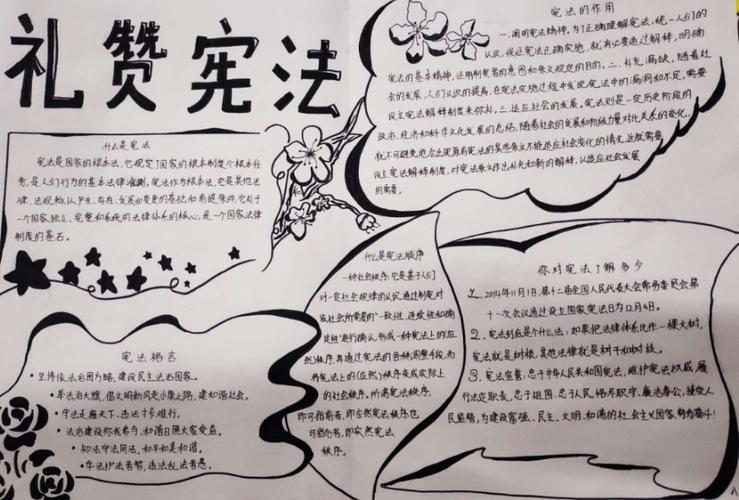 礼赞宪法
什么是宪法
宪法是国家的根本法，它规定了国家的根本制度个根本任
务，是人们行为的基本法律准则。宪法作为根本法，它是其他法
律、法规赖以产生、存在、发展和变更的基础和前提条件，它处于
一个国家独立、完整和系统的法律体系的核心，是一个国家法律
制度的基石。
宪法的作用
一、阐明宪法精神，为了正确理解宪法，统一人们的
认识，保证宪法正确实施，就有必要通过解释，明确
宪法的基本精神，证明制宪者的意图和条文规定的目的。二、补充漏缺，随着社
会的发展，人们认识的提高，在宪法实施过程中发现宪法中的漏洞和不足，需要
设立宪法解释制度来弥补。三、适应社会的发展，宪法则是一定历史阶段的
政治、经济和科学文化发展的总结，随着社会的发展和阶级力量对比关系的变化，
就不可避免地会出现原有宪法的某些条文不能适应社会变化的情况，这就需要
设立宪法解释制度，对宪法条文作出补充和新的解释，以适应社会发展
的需要。
什么是宪法顺序
一种社会秩序，它是基于人们
对一定社会规律的认识，通过制宪对
致性"进行确认，形成一种宪法上的(应
然)秩序，再通过宪法的各种调整手段，而
将宪法上的(应然)秩序变成实际上
的社会秩序。所谓宪法秩序，
即可指前者，即应然宪法秩序也
可指后者，即实然宪法
秩序。
你对宪法了解多少
1、2014年11月1日，第十二届全国人民代表大会常务委员会第
十一次会议通过设立国家宪法日为12月4日。
2、宪法到底是个什么法：如果把法律体系比作一棵大树，
宪法就是树根，其他法律就是树干和树枝。
3、宪法宣誓：忠于中华人民共和国宪法，维护宪法权威，履
行法定职责，忠于祖国，忠于人民，恪尽职守、廉洁奉公，接受人
民监督，为建设富强、民主、文明、和谐的社会主义国家努力奋斗！
宪法格言
• 坚持依法治国方略，建设民主法治国家。
• 举法治大旗，倡文明新风走小康之路，建和谐社会。
• 守法走遍天下，违法寸步难行。
• 法治建设你我参与，和谐日照大家受益。
• 知法守法用法，和平和美和谐。
• 学法护法者智，违法乱法者愚。